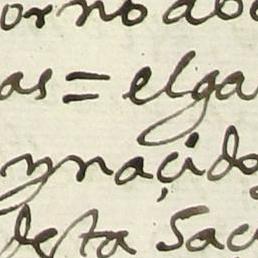 orno abo
as = elga
ynaçido
desta Sac